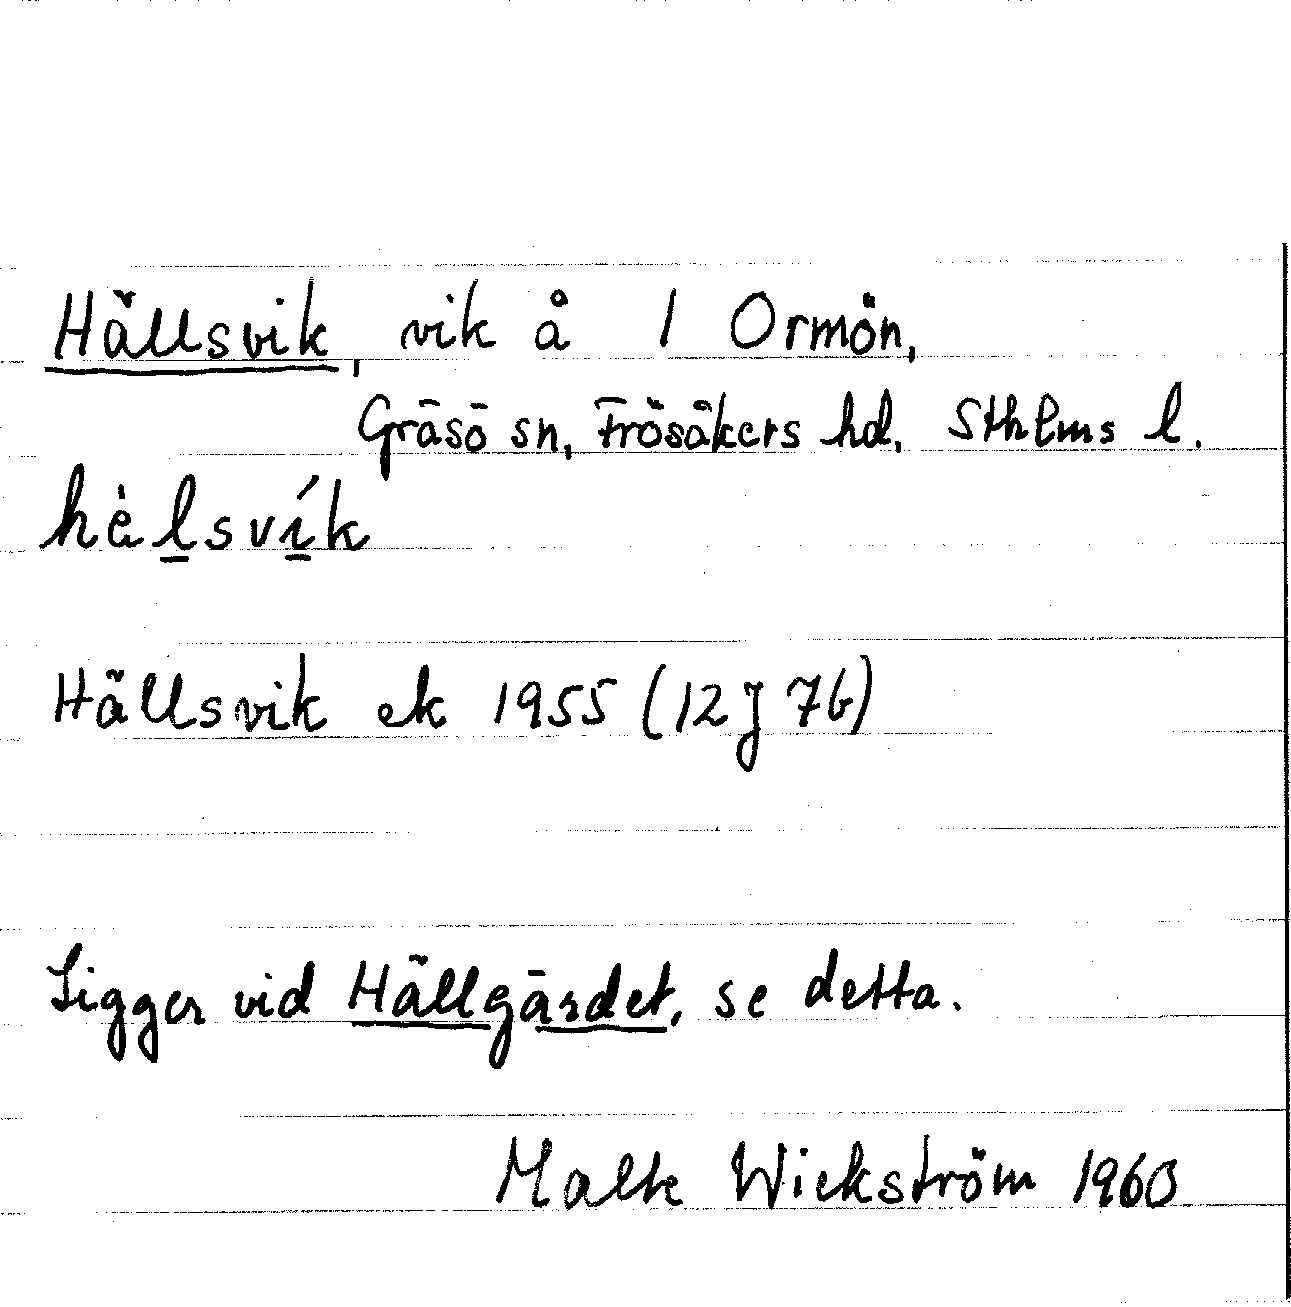 Hällsvik, vik å 1 Ormön,
Gräsö sn, Frösåkers hd, Sthlms l.
hèlsvík
Hällsvik ek 1955 (12 J 7b)
Ligger vid Hällgärdet, se detta.
Malte Wickström 1960